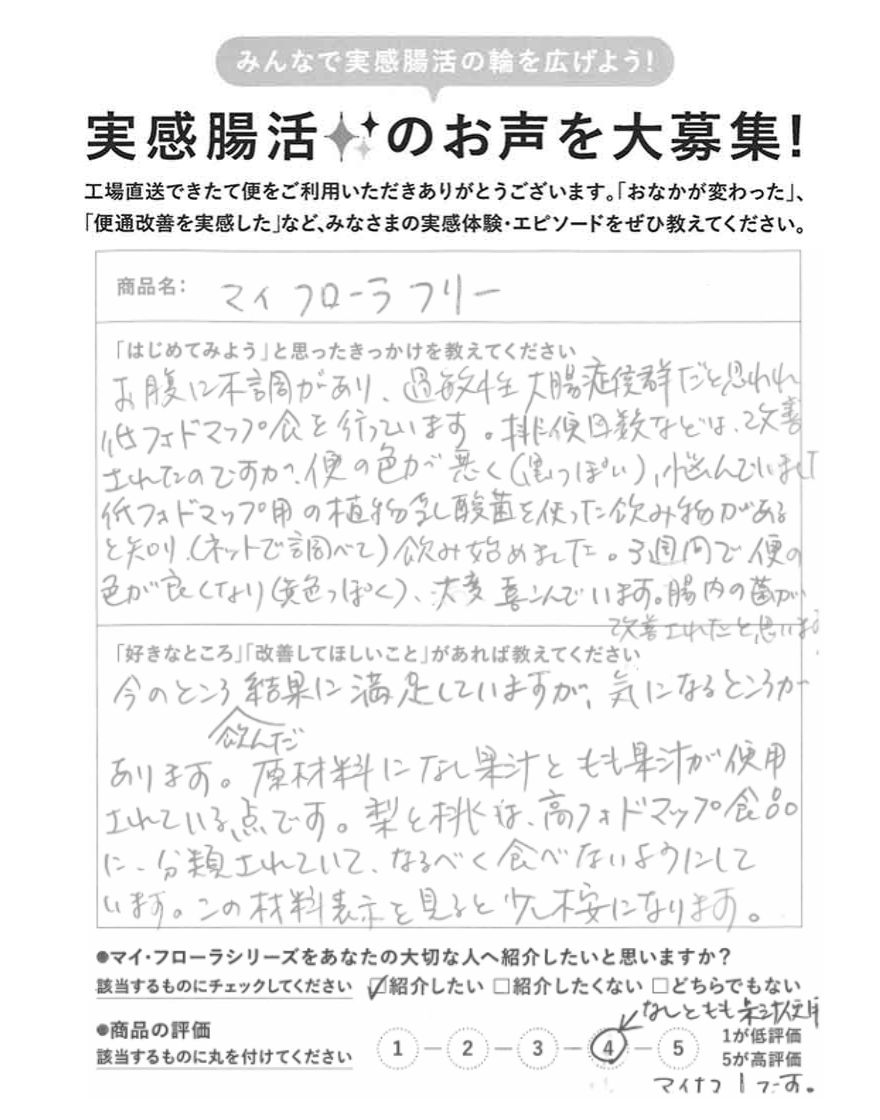 みんなで実感腸活の輪を広げよう!
実感腸活のお声を大募集!
工場直送できたて便をご利用いただきありがとうございます。「おなかが変わった」、
「便通改善を実感した」など、みなさまの実感体験・エピソードをぜひ教えてください。
商品名: マイフローラフリー
「はじめてみよう」と思ったきっかけを教えてください
お腹に不調があり、過敏性大腸症候群だと思われ
低フォドマップ食を行っています。排便回数などは、改善
されたのですが、便の色が悪く(黒っぽい)、悩んでいまし
低フォドマップ用の植物乳酸菌を使った飲み物がある
と知り、(ネットで調べて)飲み始めました。3週間で便の
色が良くなり(黄色っぽく)、大変喜んでいます。腸内の菌が
改善されたと思います
「好きなところ」「改善してほしいこと」があれば教えてください
今のところ結果に満足していますが、気になるところが
飲んだ
あります。原材料になし果汁ともも果汁が使用
されている点です。梨と桃は、高フォドマップ食品
に、分類されていて、なるべく食べないようにして
います。この材料表示を見ると少し不安になります。
●マイ・フローラシリーズをあなたの大切な人へ紹介したいと思いますか?
該当するものにチェックしてください ☑紹介したい □紹介したくない □どちらでもない
なしともも果汁使用
●商品の評価
該当するものに丸を付けてください 1 - 2 - 3 - 4 - 5 1が低評価
5が高評価
マイナ 1 です。